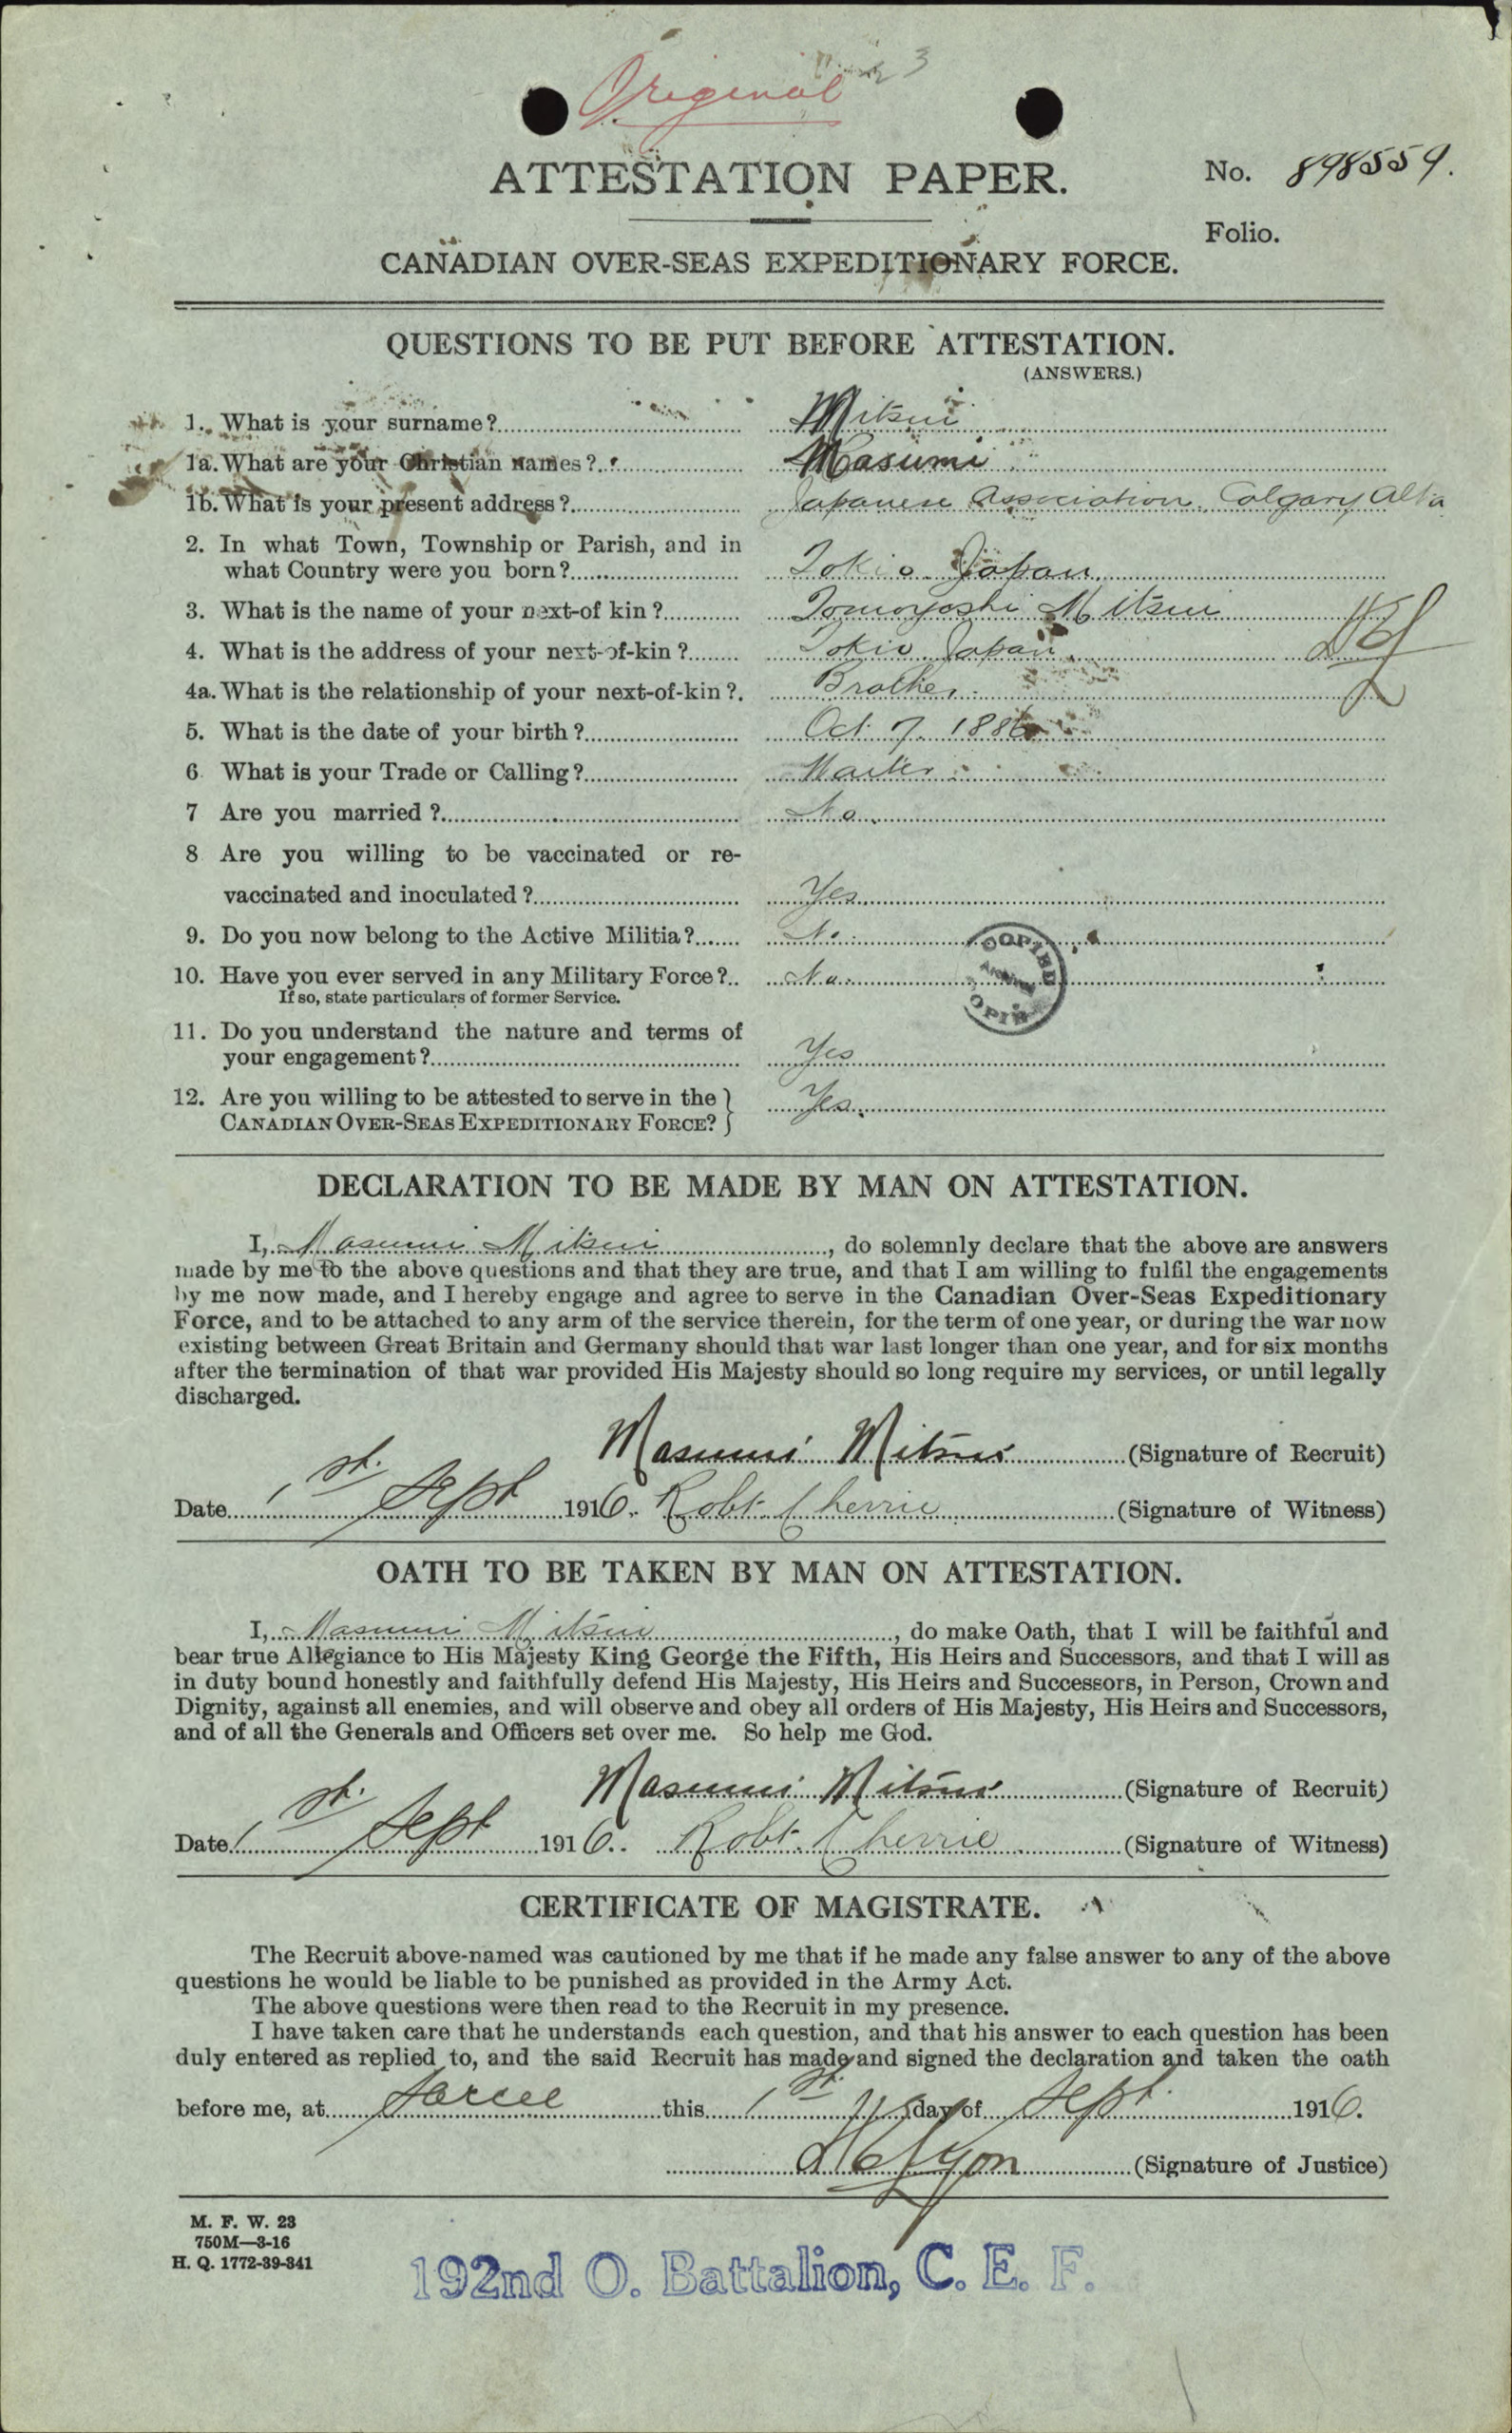 Original
23
ATTESTATION PAPER.
No. 898559.
Folio.
CANADIAN OVER-SEAS EXPEDITIONARY FORCE.
QUESTIONS TO BE PUT BEFORE ATTESTATION.
(ANSWERS.)
1. What is your surname?.... Mitsui
1a. What are your Christian names?.... Masumi
1b. What is your present address?.... Japanese Association, Calgary Alta
2. In what Town, Township or Parish, and in
what Country were you born?.... Tokio Japan
3. What is the name of your next-of kin?.... Tomoyoshi Mitsui
4. What is the address of your next-of-kin?.... Tokio Japan
4a. What is the relationship of your next-of-kin?. Brother
5. What is the date of your birth?.... Oct. 7. 1886
6 What is your Trade or Calling?.... Waiter
7 Are you married?.... No.
8 Are you willing to be vaccinated or re-
vaccinated and inoculated?.... Yes
9. Do you now belong to the Active Militia?.... No.
10. Have you ever served in any Military Force?.. No.
If so, state particulars of former Service.
COPIED
11. Do you understand the nature and terms of
your engagement?.... Yes
12. Are you willing to be attested to serve in the } Yes.
CANADIAN OVER-SEAS EXPEDITIONARY FORCE?
DECLARATION TO BE MADE BY MAN ON ATTESTATION.
I, Masumi Mitsui, do solemnly declare that the above are answers
made by me to the above questions and that they are true, and that I am willing to fulfil the engagements
by me now made, and I hereby engage and agree to serve in the Canadian Over-Seas Expeditionary
Force, and to be attached to any arm of the service therein, for the term of one year, or during the war now
existing between Great Britain and Germany should that war last longer than one year, and for six months
after the termination of that war provided His Majesty should so long require my services, or until legally
discharged.
Masumi Mitsui (Signature of Recruit)
Date 1st Sept 1916. Robt. Cherrie (Signature of Witness)
OATH TO BE TAKEN BY MAN ON ATTESTATION.
I, Masumi Mitsui, do make Oath, that I will be faithful and
bear true Allegiance to His Majesty King George the Fifth, His Heirs and Successors, and that I will as
in duty bound honestly and faithfully defend His Majesty, His Heirs and Successors, in Person, Crown and
Dignity, against all enemies, and will observe and obey all orders of His Majesty, His Heirs and Successors,
and of all the Generals and Officers set over me. So help me God.
Masumi Mitsui (Signature of Recruit)
Date 1st Sept 1916. Robt. Cherrie (Signature of Witness)
CERTIFICATE OF MAGISTRATE.
The Recruit above-named was cautioned by me that if he made any false answer to any of the above
questions he would be liable to be punished as provided in the Army Act.
The above questions were then read to the Recruit in my presence.
I have taken care that he understands each question, and that his answer to each question has been
duly entered as replied to, and the said Recruit has made and signed the declaration and taken the oath
before me, at Sarcee this 1st day of Sept. 1916.
(Signature of Justice)
M. F. W. 23
750M—3-16
H. Q. 1772-39-341
192nd O. Battalion, C. E. F.